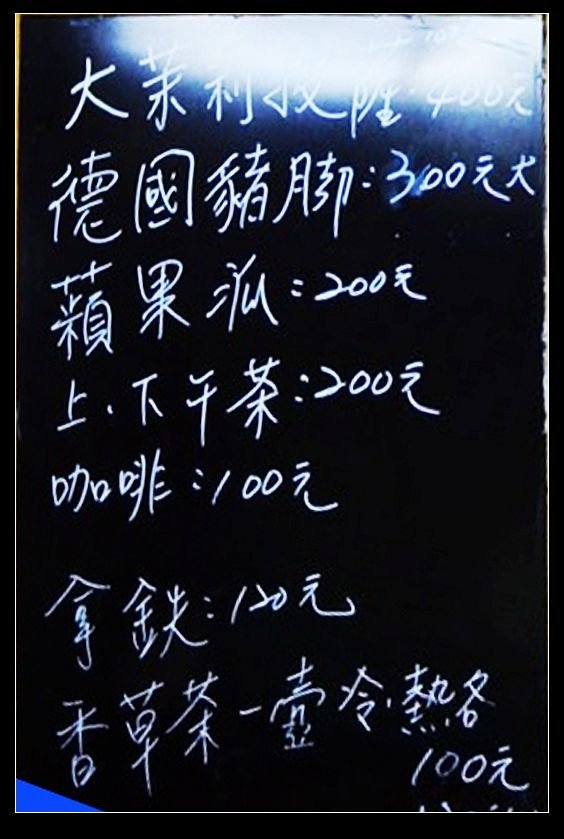 大茉莉披薩:400元
德國豬腳:300元大
蘋果派:200元
上.下午茶:200元
咖啡:100元
拿鉄:120元
香草茶一壺冷.熱各
100元